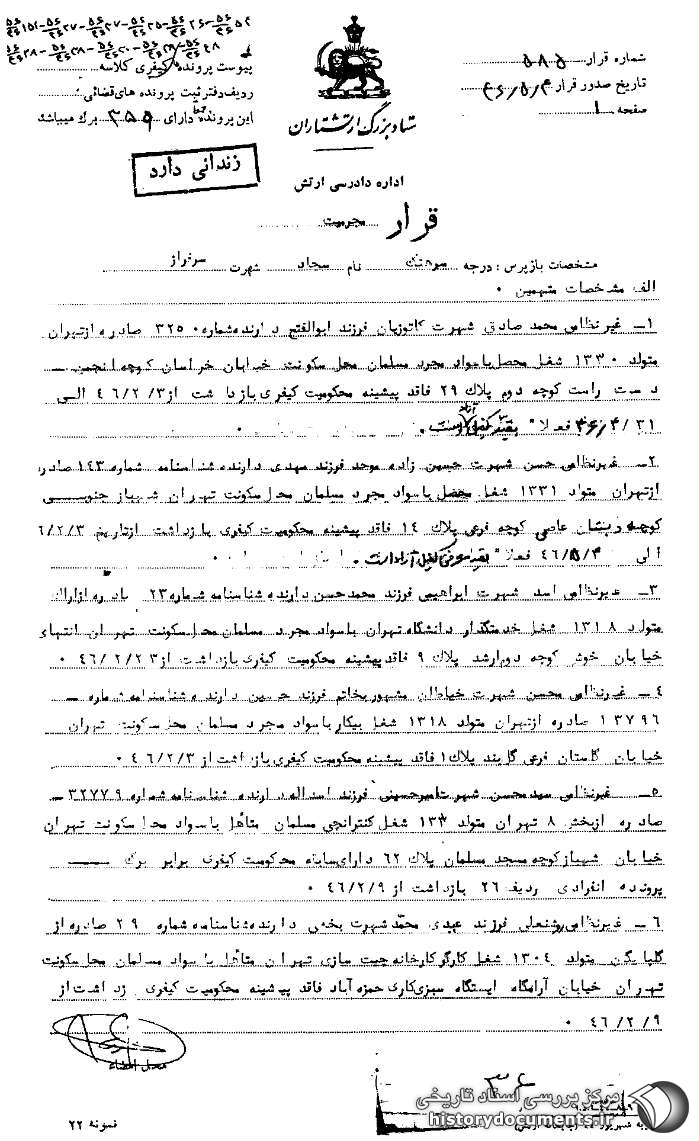 شماره قرار ۵۸۵
تاریخ صدور قرار ۴۶/۵/۴
صفحه ۱
ستاد بزرگ ارتشتاران
اداره دادرسی ارتش
پیوست پرونده کیفری کلاسه
ردیف دفتر ثبت پرونده های قضائی
این پرونده دارای ۳۵۵ برگ میباشد
زندانی دارد
قرار مجرمیت
مشخصات بازپرس : درجه سرهنگ نام سجاد شهرت سرفراز
الف مشخصات متهمین ۰
۱ــ غیرنظامی محمد صادق شهرت کاتوزیان فرزند ابوالفتح دارنده شماره ۳۲۵۰ صادره ازتهران
متولد ۱۳۳۰ شغل محصل باسواد مجرد مسلمان محل سکونت خیابان خراسان کوچه انجمن ــ
دست راست کوچه دوم پلاک ۲۹ فاقد پیشینه محکومیت کیفری بازداشت از ۴۶/۲/۳ الی
۴۶/۴/۳۱ فعلا" بقید کفیل آزاد است ۰
۲ــ غیرنظامی حسن شهرت حسین زاده موحد فرزند مهدی دارنده شناسنامه شماره ۱۴۳ صادره
ازتهران متولد ۱۳۳۱ شغل محصل باسواد مجرد مسلمان محل سکونت تهران شهباز جنوبی
کوچه عاصی کوچه فرعی پلاک ۱۴ فاقد پیشینه محکومیت کیفری بازداشت ازتاریخ ۶/۲/۳
الی ۴۶/۵/۴ فعلا" بقید معرفی کفیل آزاد است ۰
۳ــ غیرنظامی اسد شهرت ابراهیمی فرزند محمدحسن دارنده شناسنامه شماره ۲۳ صادره ازاراک
متولد ۱۳۱۸ شغل خدمتگذار دانشگاه تهران باسواد مجرد مسلمان محل سکونت تهران انتهای
خیابان خوش کوچه دوم ارشد پلاک ۹ فاقد پیشینه محکومیت کیفری بازداشت از ۴۶/۲/۲۳ ۰
۴ــ غیرنظامی محسن شهرت خیاطان مشهور بخاتم فرزند حسین دارنده شناسنامه شماره ــ
۱۳۷۹۶ صادره ازتهران متولد ۱۳۱۸ شغل بیکار باسواد مجرد مسلمان محل سکونت تهران
خیابان گلستان فرعی گلبند پلاک ۱ فاقد پیشینه محکومیت کیفری بازداشت از ۴۶/۲/۳ ۰
۵ــ غیرنظامی سید محسن شهرت امیرحسینی فرزند اسداله دارنده شناسنامه شماره ۳۲۷۷۹ــ
صادره ازبخش ۸ تهران متولد شغل کنترانچی مسلمان متأهل باسواد محل سکونت تهران
خیابان شهباز کوچه مسجد سلمان پلاک ۶۲ دارای سابقه محکومیت کیفری برابر برگ
پرونده انفرادی ردیف ۲۶ بازداشت از ۴۶/۲/۹ ۰
۶ــ غیرنظامی روشنعلی فرزند عبدی محمد شهرت بخشی دارنده شناسنامه شماره ۲۹ صادره از
گلپایگان متولد ۱۳۰۴ شغل کارگر کارخانه چیت سازی تهران متأهل باسواد مسلمان محل سکونت
تهران خیابان آرامگاه ایستگاه سبزی کاری حمزه آباد فاقد پیشینه محکومیت کیفری بازداشت از
۴۶/۲/۹ ۰
محل امضاء
نمونه ۲۲
مرکز بررسی اسناد تاریخی
historydocuments.ir